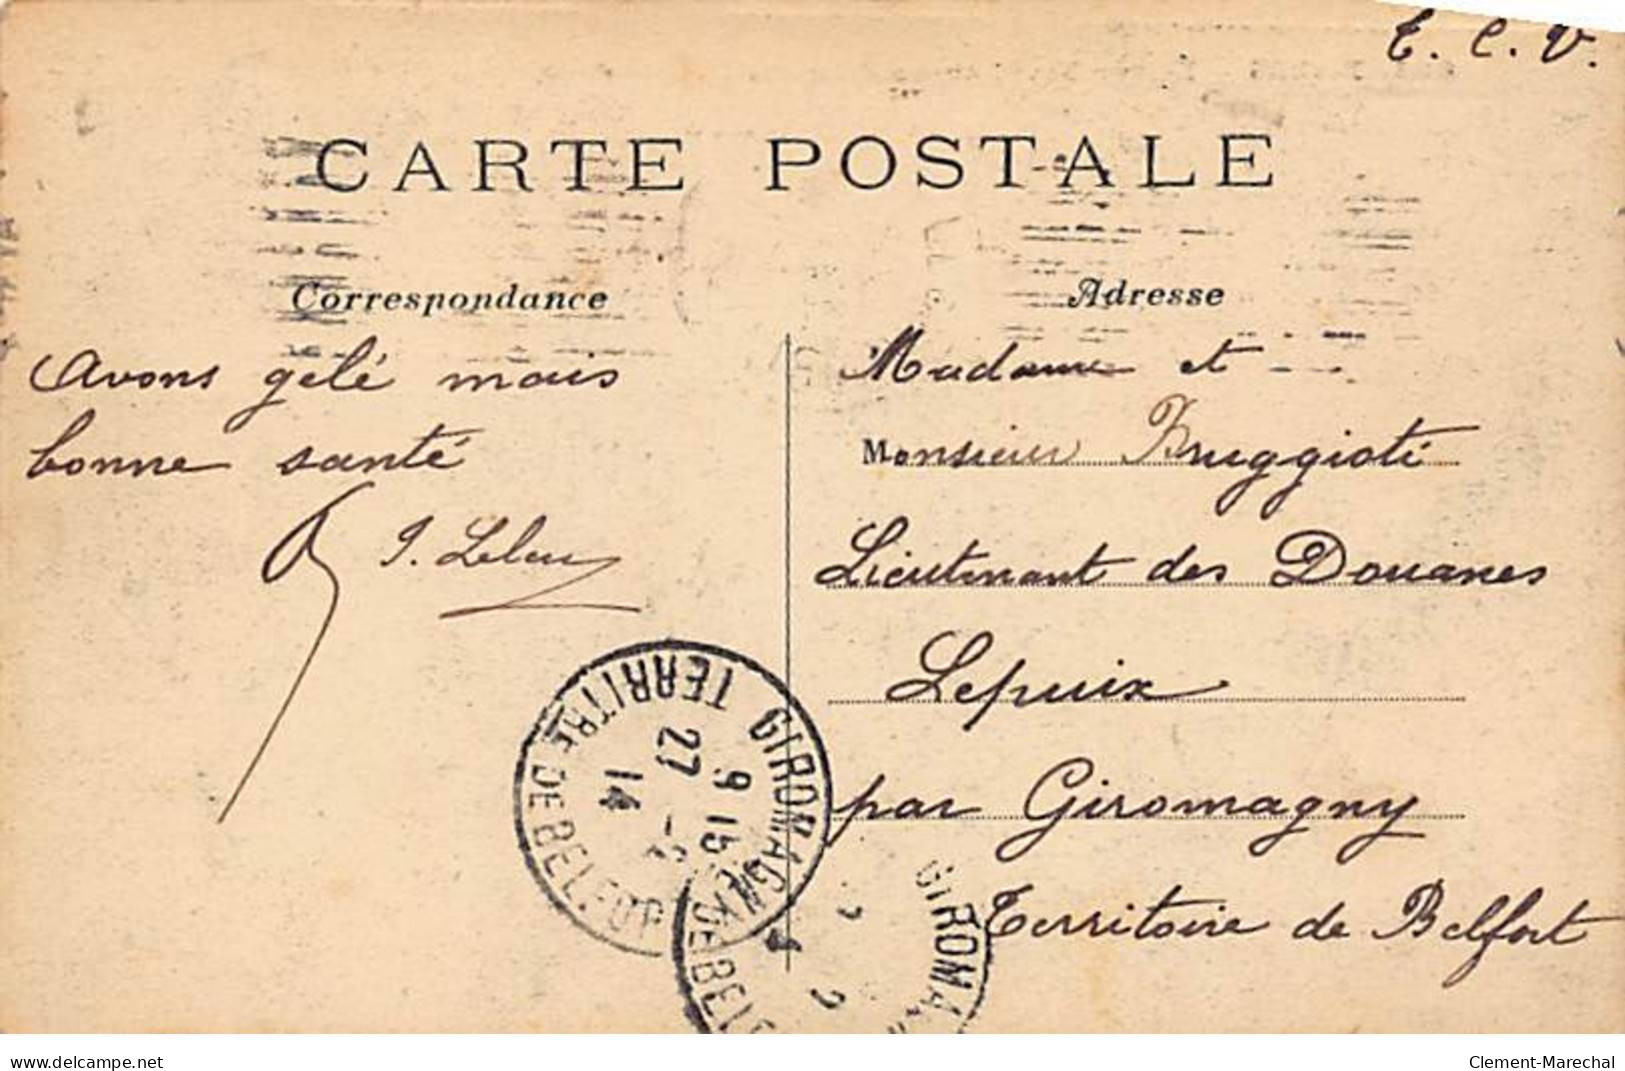 T. C. V.
CARTE POSTALE
Correspondance
Avons gelé mais
bonne santé
J.
Adresse
Madame et
Monsieur Bruggioti
Lieutenant des Douanes
Lepuix
par Giromagny
Territoire de Belfort
GIROMAGNY
TERRIT^RE DE BELFORT
9 15
27 -2
14
GIROMA
DE BEL
www.delcampe.net
Clement-Marechal